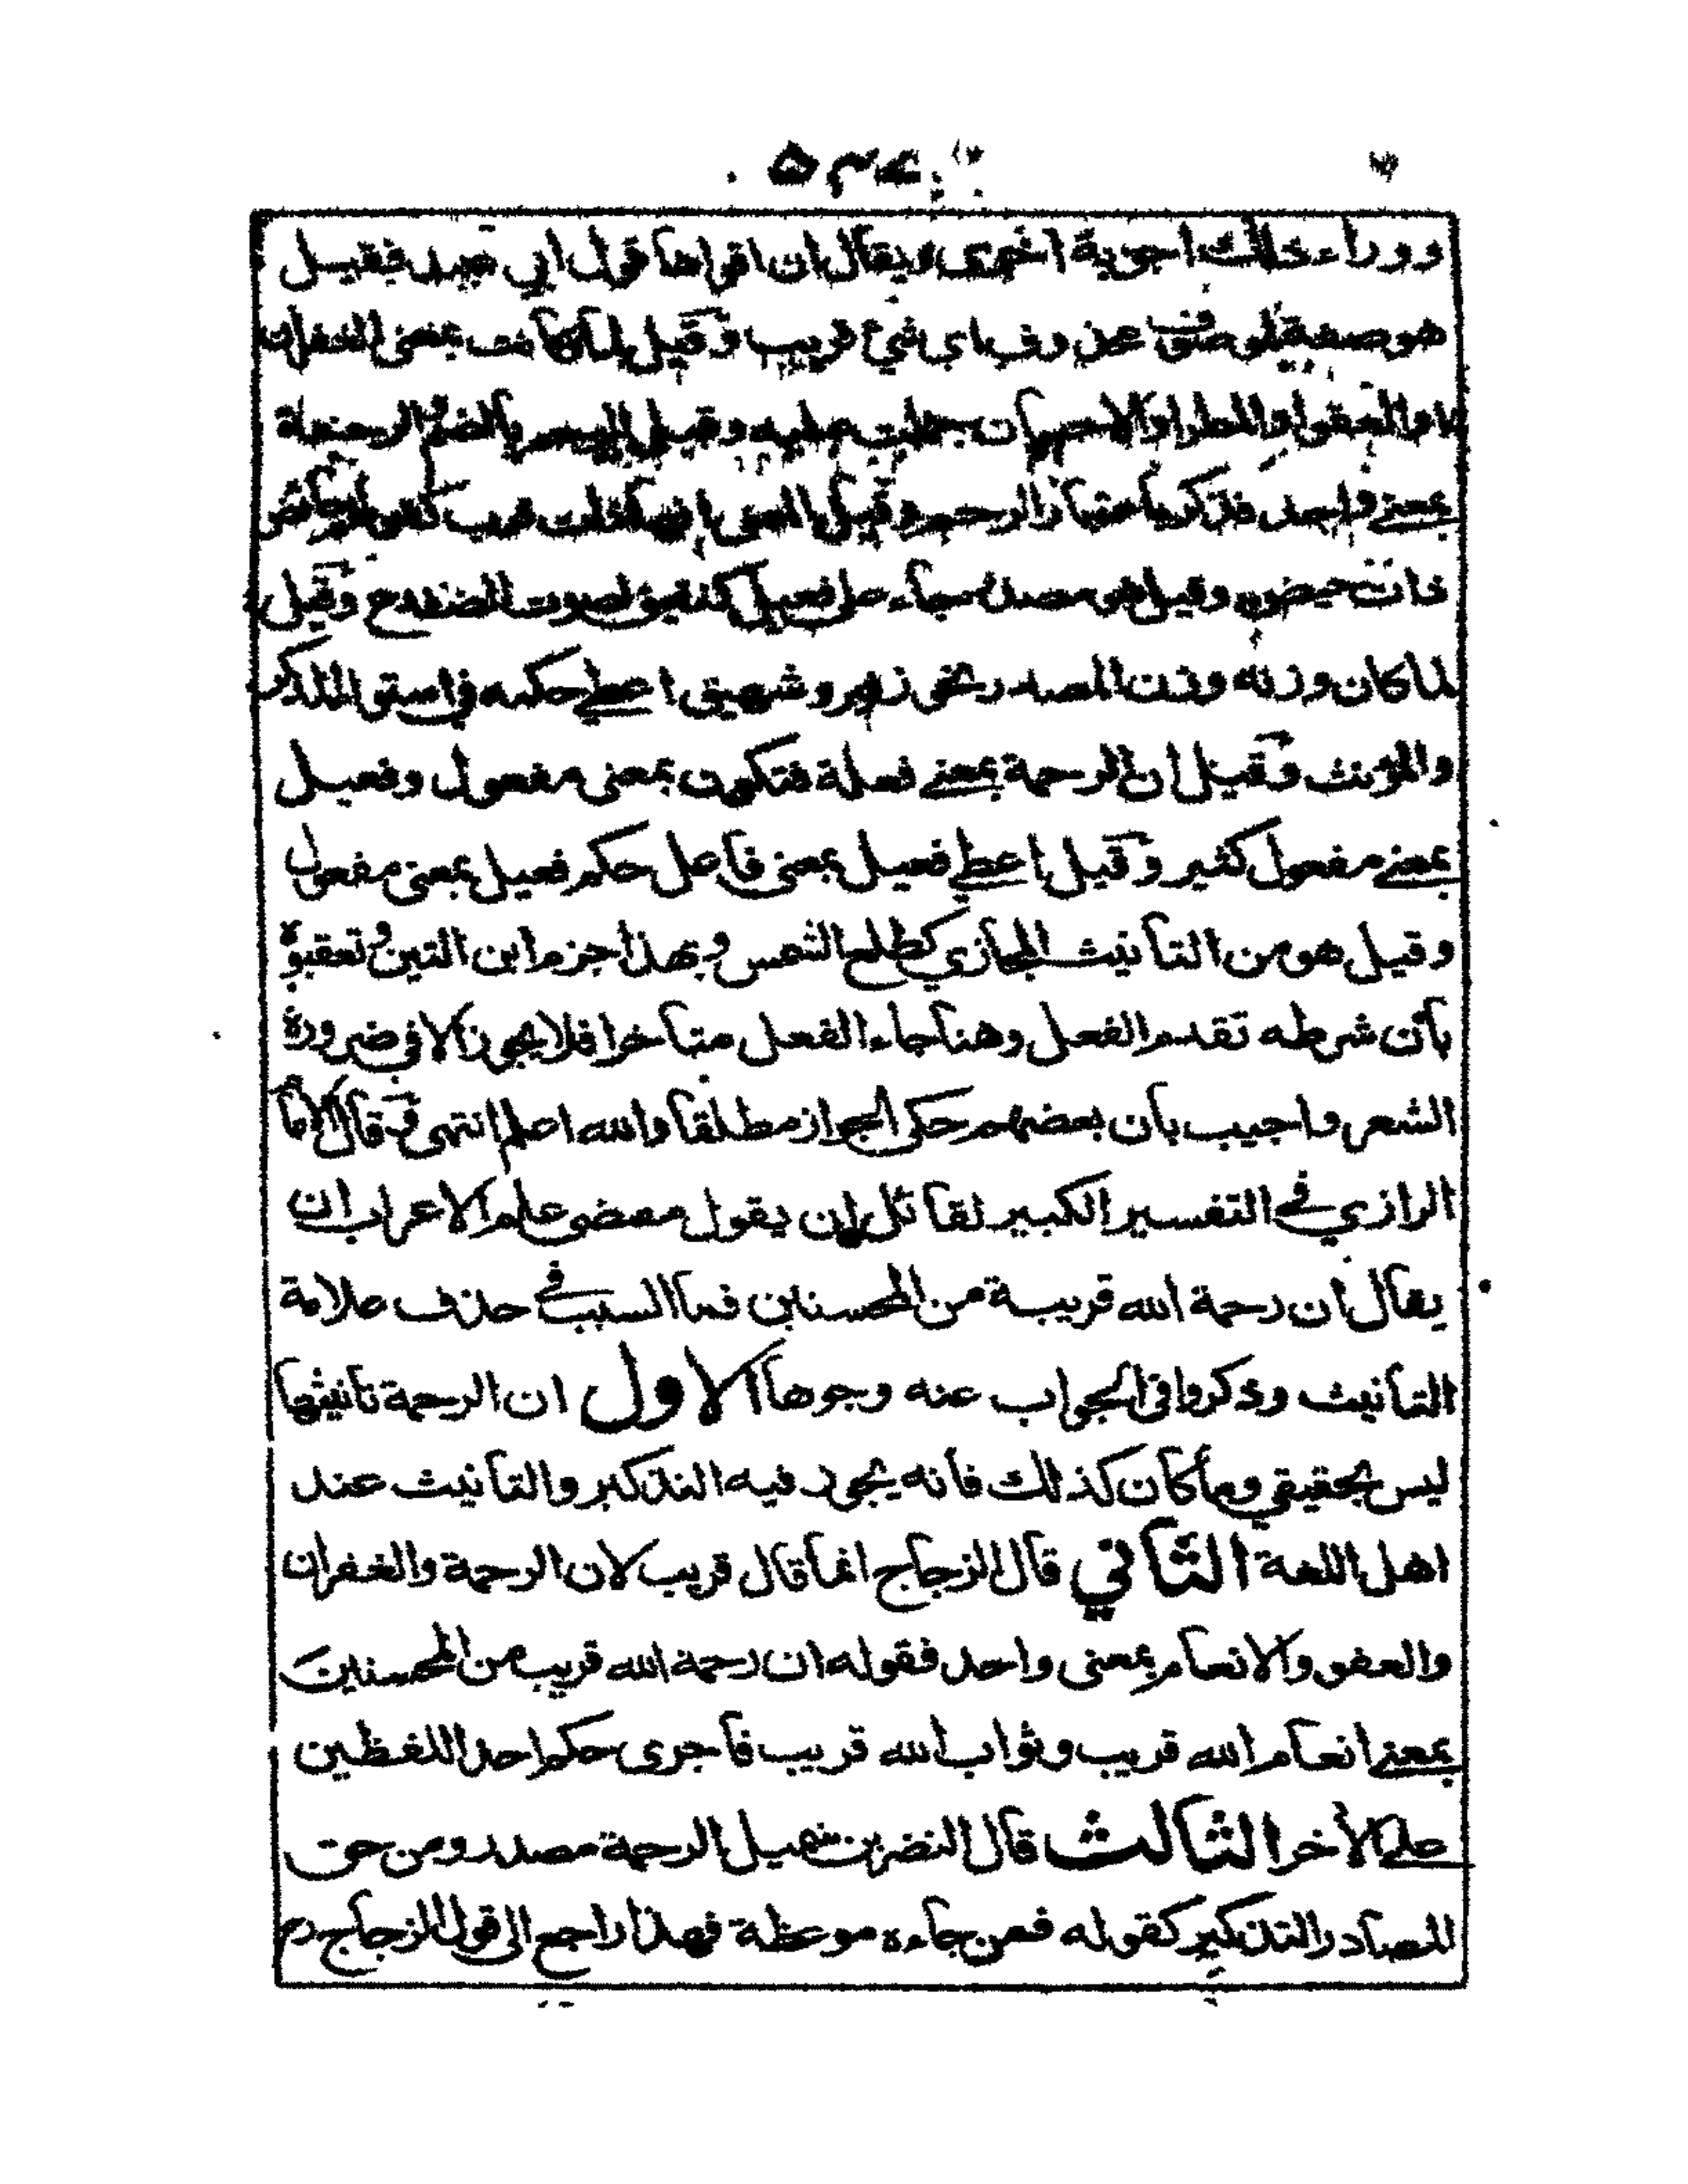 ووراء ذلك اجوبة اخرى ويقال ان اقواها قول ابي عبيد فقيل
هو صفة لموصوف محذوف اي شيئ قريب وقيل لما كانت بمعنى الغفران
او العفو او المطر او الاحسان حملت عليه وقيل الرحم بالضم والرحمة
بمعنے واحد فذكر باعتبار الرحم وقيل المعنى انها ذات قرب كقولهم حائض
ذات حيض وقيل هو مصدر جاء على فعيل كنقيق لصوت الضفدع وقيل
لما كان وزنه وزن المصدر نحو زفير وشهيق اعطے حكمه في استوا المذكر
والمؤنث وقيل ان الرحمة بمعنے فعلة فتكون بمعنى مفعول وفعيل
بمعنے مفعول كثير وقيل اعطے فعيل بمعنى فاعل حكم فعيل بمعنى مفعول
وقيل هو من التأنيث المجازي كطلع الشمس وبهذا جزم ابن التين وتعقبوه
بأن شرطه تقدم الفعل وهنا جاء الفعل متأخرا فلا يجوز الا في ضرورة
الشعر واجيب بأن بعضهم حكى الجواز مطلقا والله اعلم انتهى وقال الامام
الرازي في التفسير الكبير لقائل ان يقول مقتضى علم الاعراب ان
يقال ان رحمة الله قريبة من المحسنين فما السبب في حذف علامة
التأنيث وذكروا في الجواب عنه وجوها الاول ان الرحمة تانيثها
ليس بحقيقي وما كان كذلك فانه يجوز فيه التذكير والتأنيث عند
اهل اللغة الثاني قال الزجاج انما قال قريب لان الرحمة والغفران
والعفو والانعام بمعنى واحد فقوله ان رحمة الله قريب من المحسنين
بمعنے انعام الله قريب وثواب الله قريب فأجرى حكم احد اللفظين
علے الأخر الثالث قال النضر بن شميل الرحمة مصدر ومن حق
المصادر التذكير كقوله فمن جاءه موعظة فهذا راجع الى قول الزجاج